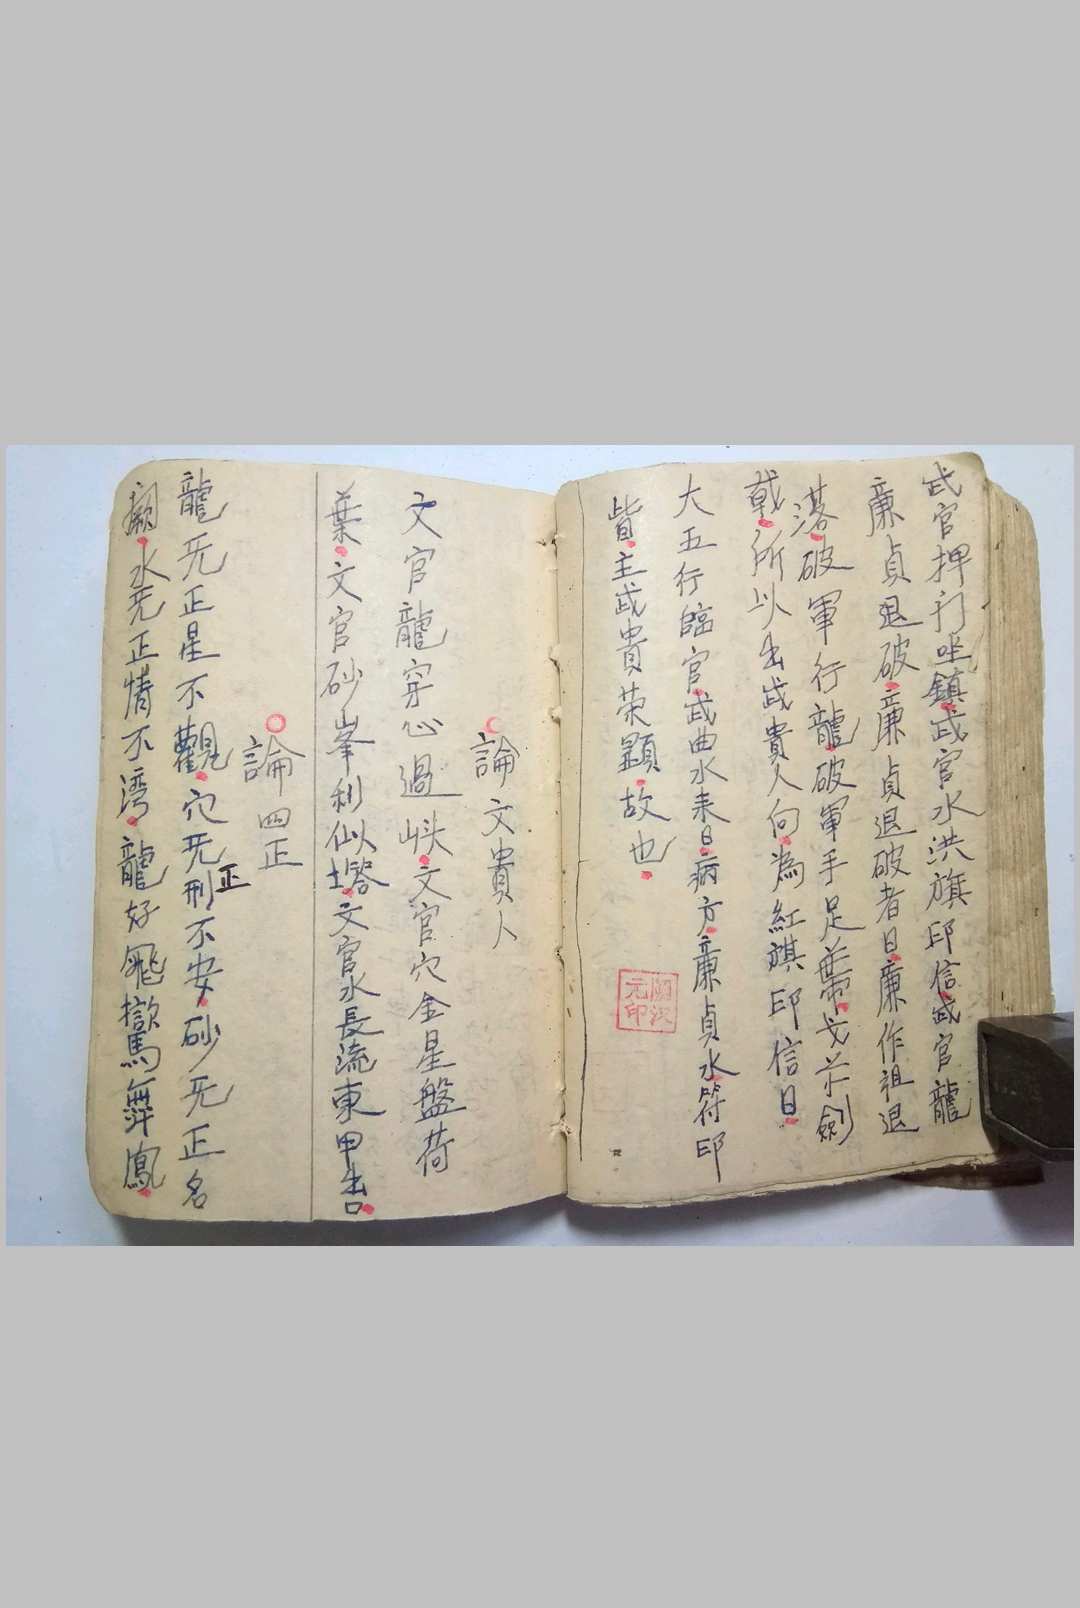 武官押刀坐鎮武官水洪旗印信武官龍
廉貞退破廉貞退破者曰廉作祖退
落破軍行龍破軍手足帶戈並劍
戟所以出武貴人向為紅旗印信曰
大五行臨官武曲水来曰病方廉貞水符印
皆主武貴荣顯故也
元印
論文貴人
文官龍穿心過峽文官穴金星盤荷
葉文官砂峯利似塔文官水長流東甲吉
論四正
龍旡正星不觀穴旡正刑不安砂旡正名
掀水旡正情不湾龍好飛鸞舞鳳